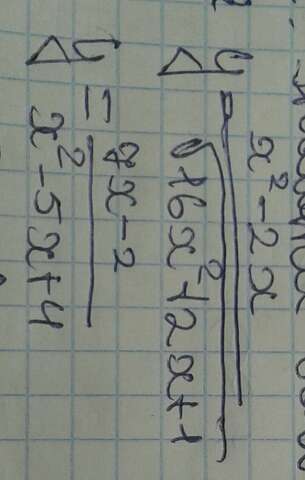 y = x² - 2x
√16x² + 2x + 1
y = x - 2
x² - 5x + 4